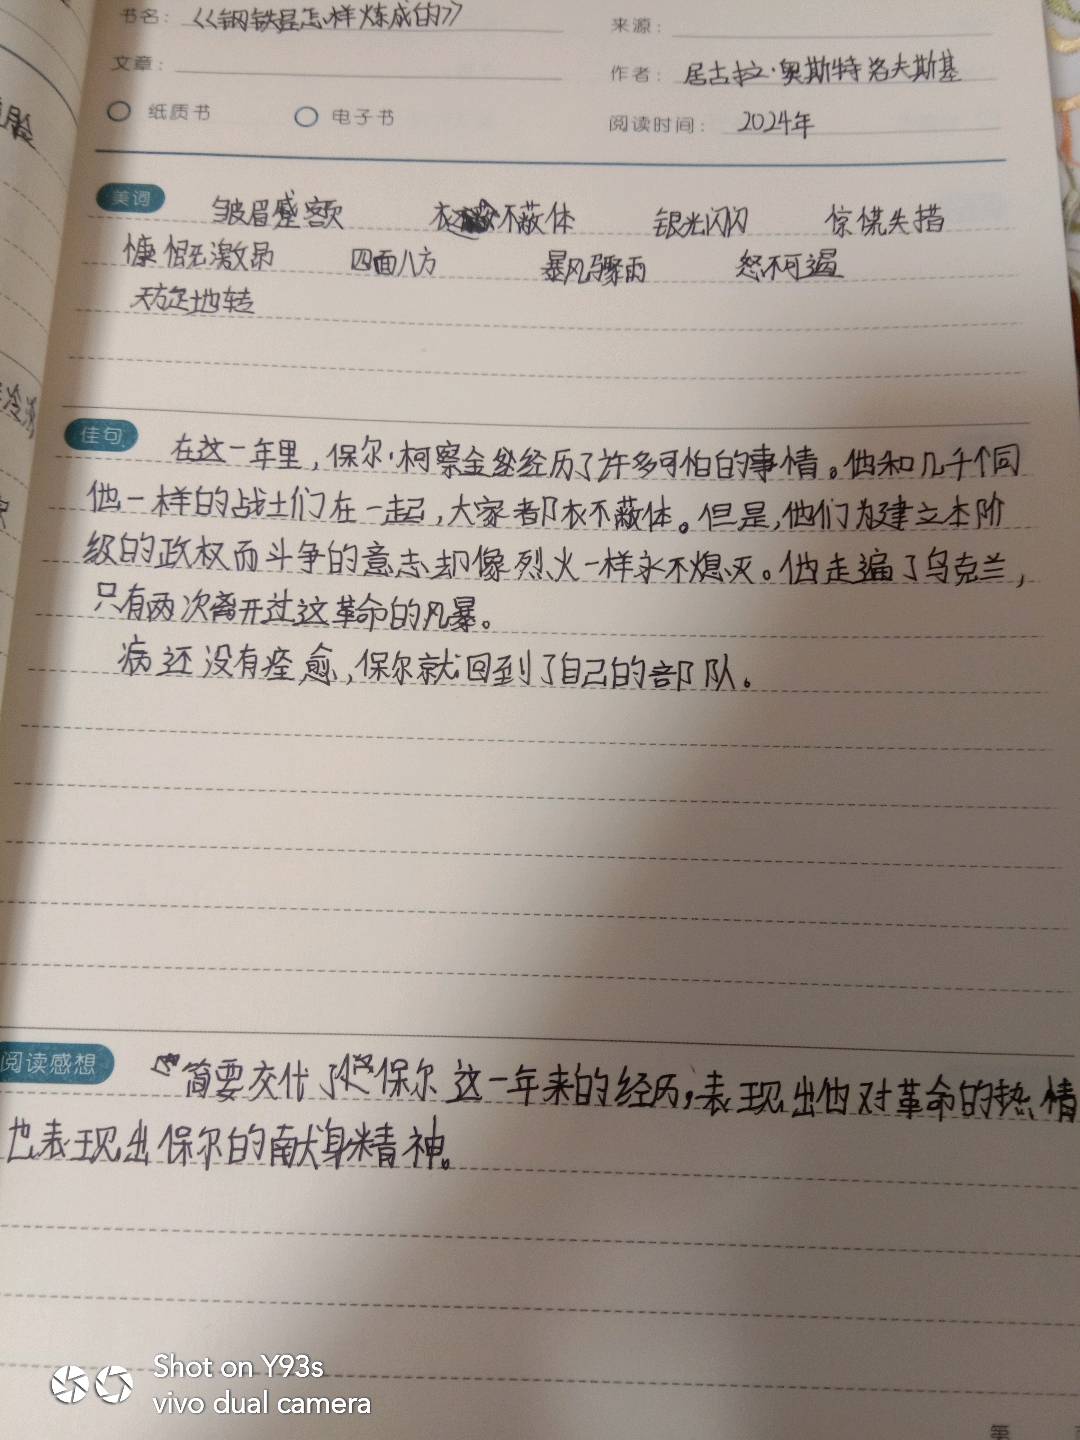 书名：《钢铁是怎样炼成的》
来源：
文章：
作者：居古拉·奥斯特洛夫斯基
纸质书 电子书
阅读时间：2024年
美词 皱眉蹙额 衣不蔽体 银光闪闪 惊慌失措
慷慨激昂 四面八方 暴风骤雨 怒不可遏
天旋地转
佳句 在这一年里，保尔·柯察金经历了许多可怕的事情。他和几千个同
他一样的战士们在一起，大家都衣不蔽体。但是，他们为建立本阶
级的政权而斗争的意志却像烈火一样永不熄灭。他走遍了乌克兰，
只有两次离开过这革命的风暴。
病还没有痊愈，保尔就回到了自己的部队。
阅读感想 简要交代了保尔这一年来的经历，表现出他对革命的热情
也表现出保尔的献身精神。
第
Shot on Y93s
vivo dual camera